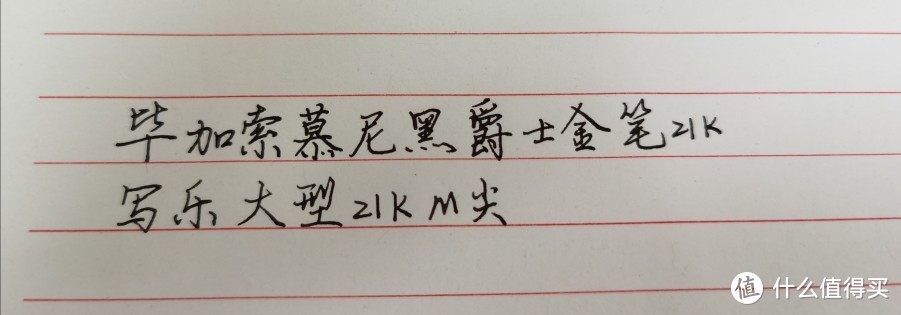 毕加索慕尼黑爵士金笔21K
写乐大型21K M尖
值 什么值得买